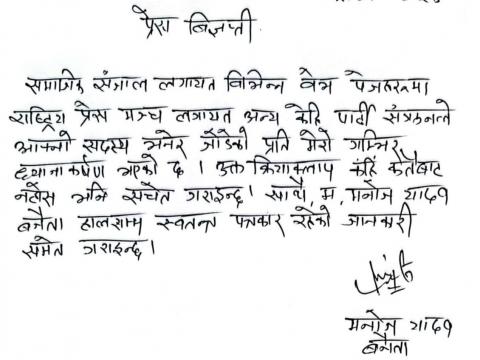 प्रेस बिज्ञप्ती
समाजिक संजाल लगायत विभिन्न वेव पेजहरुमा
राष्ट्रिय प्रेस मञ्च लगायत अन्य केहि पार्टी संगठनले
आफ्नो सदस्य भनेर जोडेको प्रति मेरो गम्भिर
ध्यानाकर्षण भएको छ । उक्त क्रियाकलाप कहिं कतैबाट
नहोस भनि सचेत गराइन्छ । साथै, म, मनोज यादव
बनैता हालसम्म स्वतन्त पत्रकार रहेको जानकारी
समेत गराइन्छ ।
मनोज यादव
बनैता